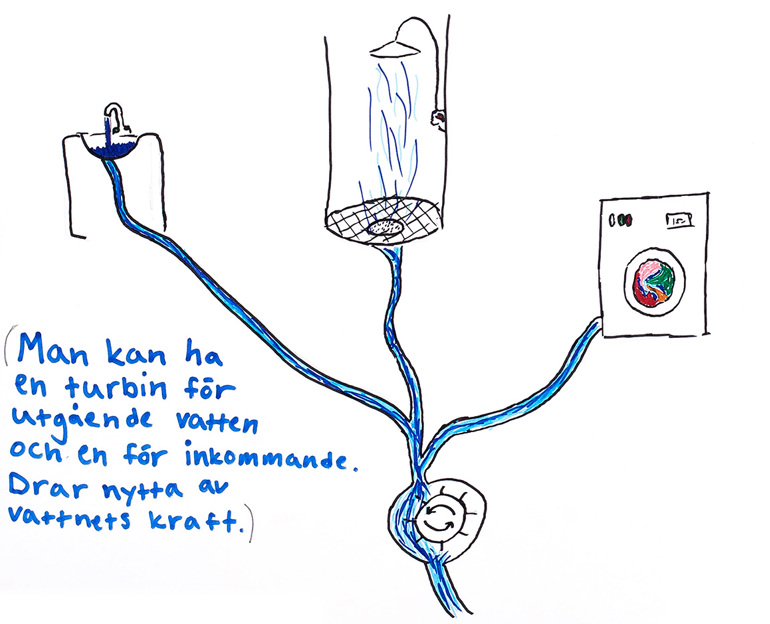 (Man kan ha
en turbin för
utgående vatten
och en för inkommande.
Drar nytta av
vattnets kraft.)